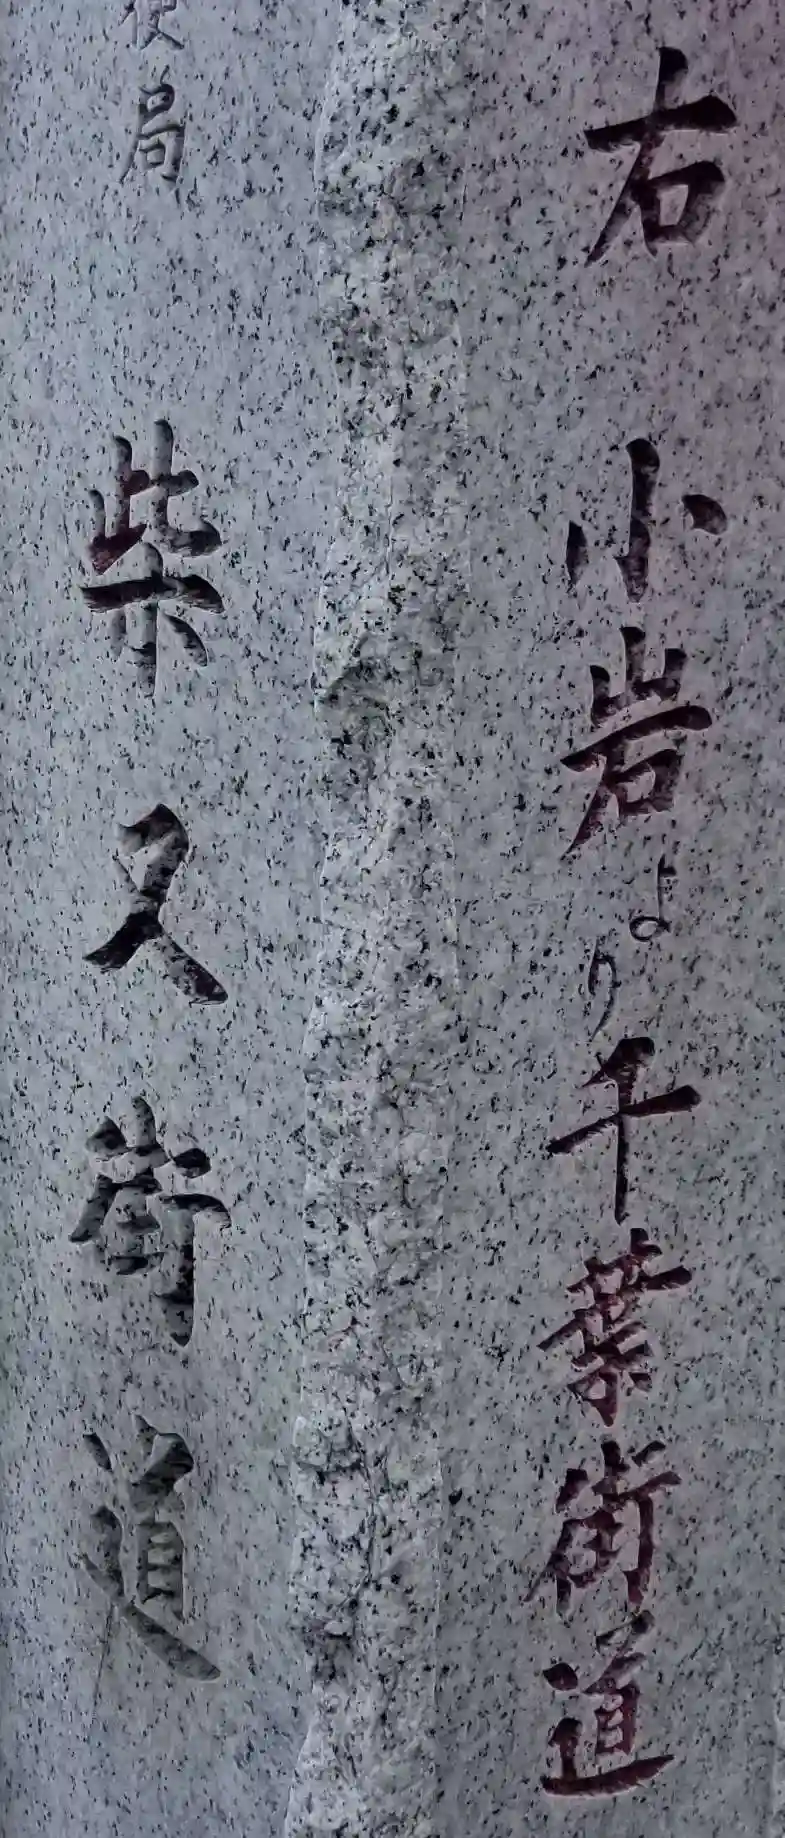 右 小岩より千葉街道
便局
柴又街道